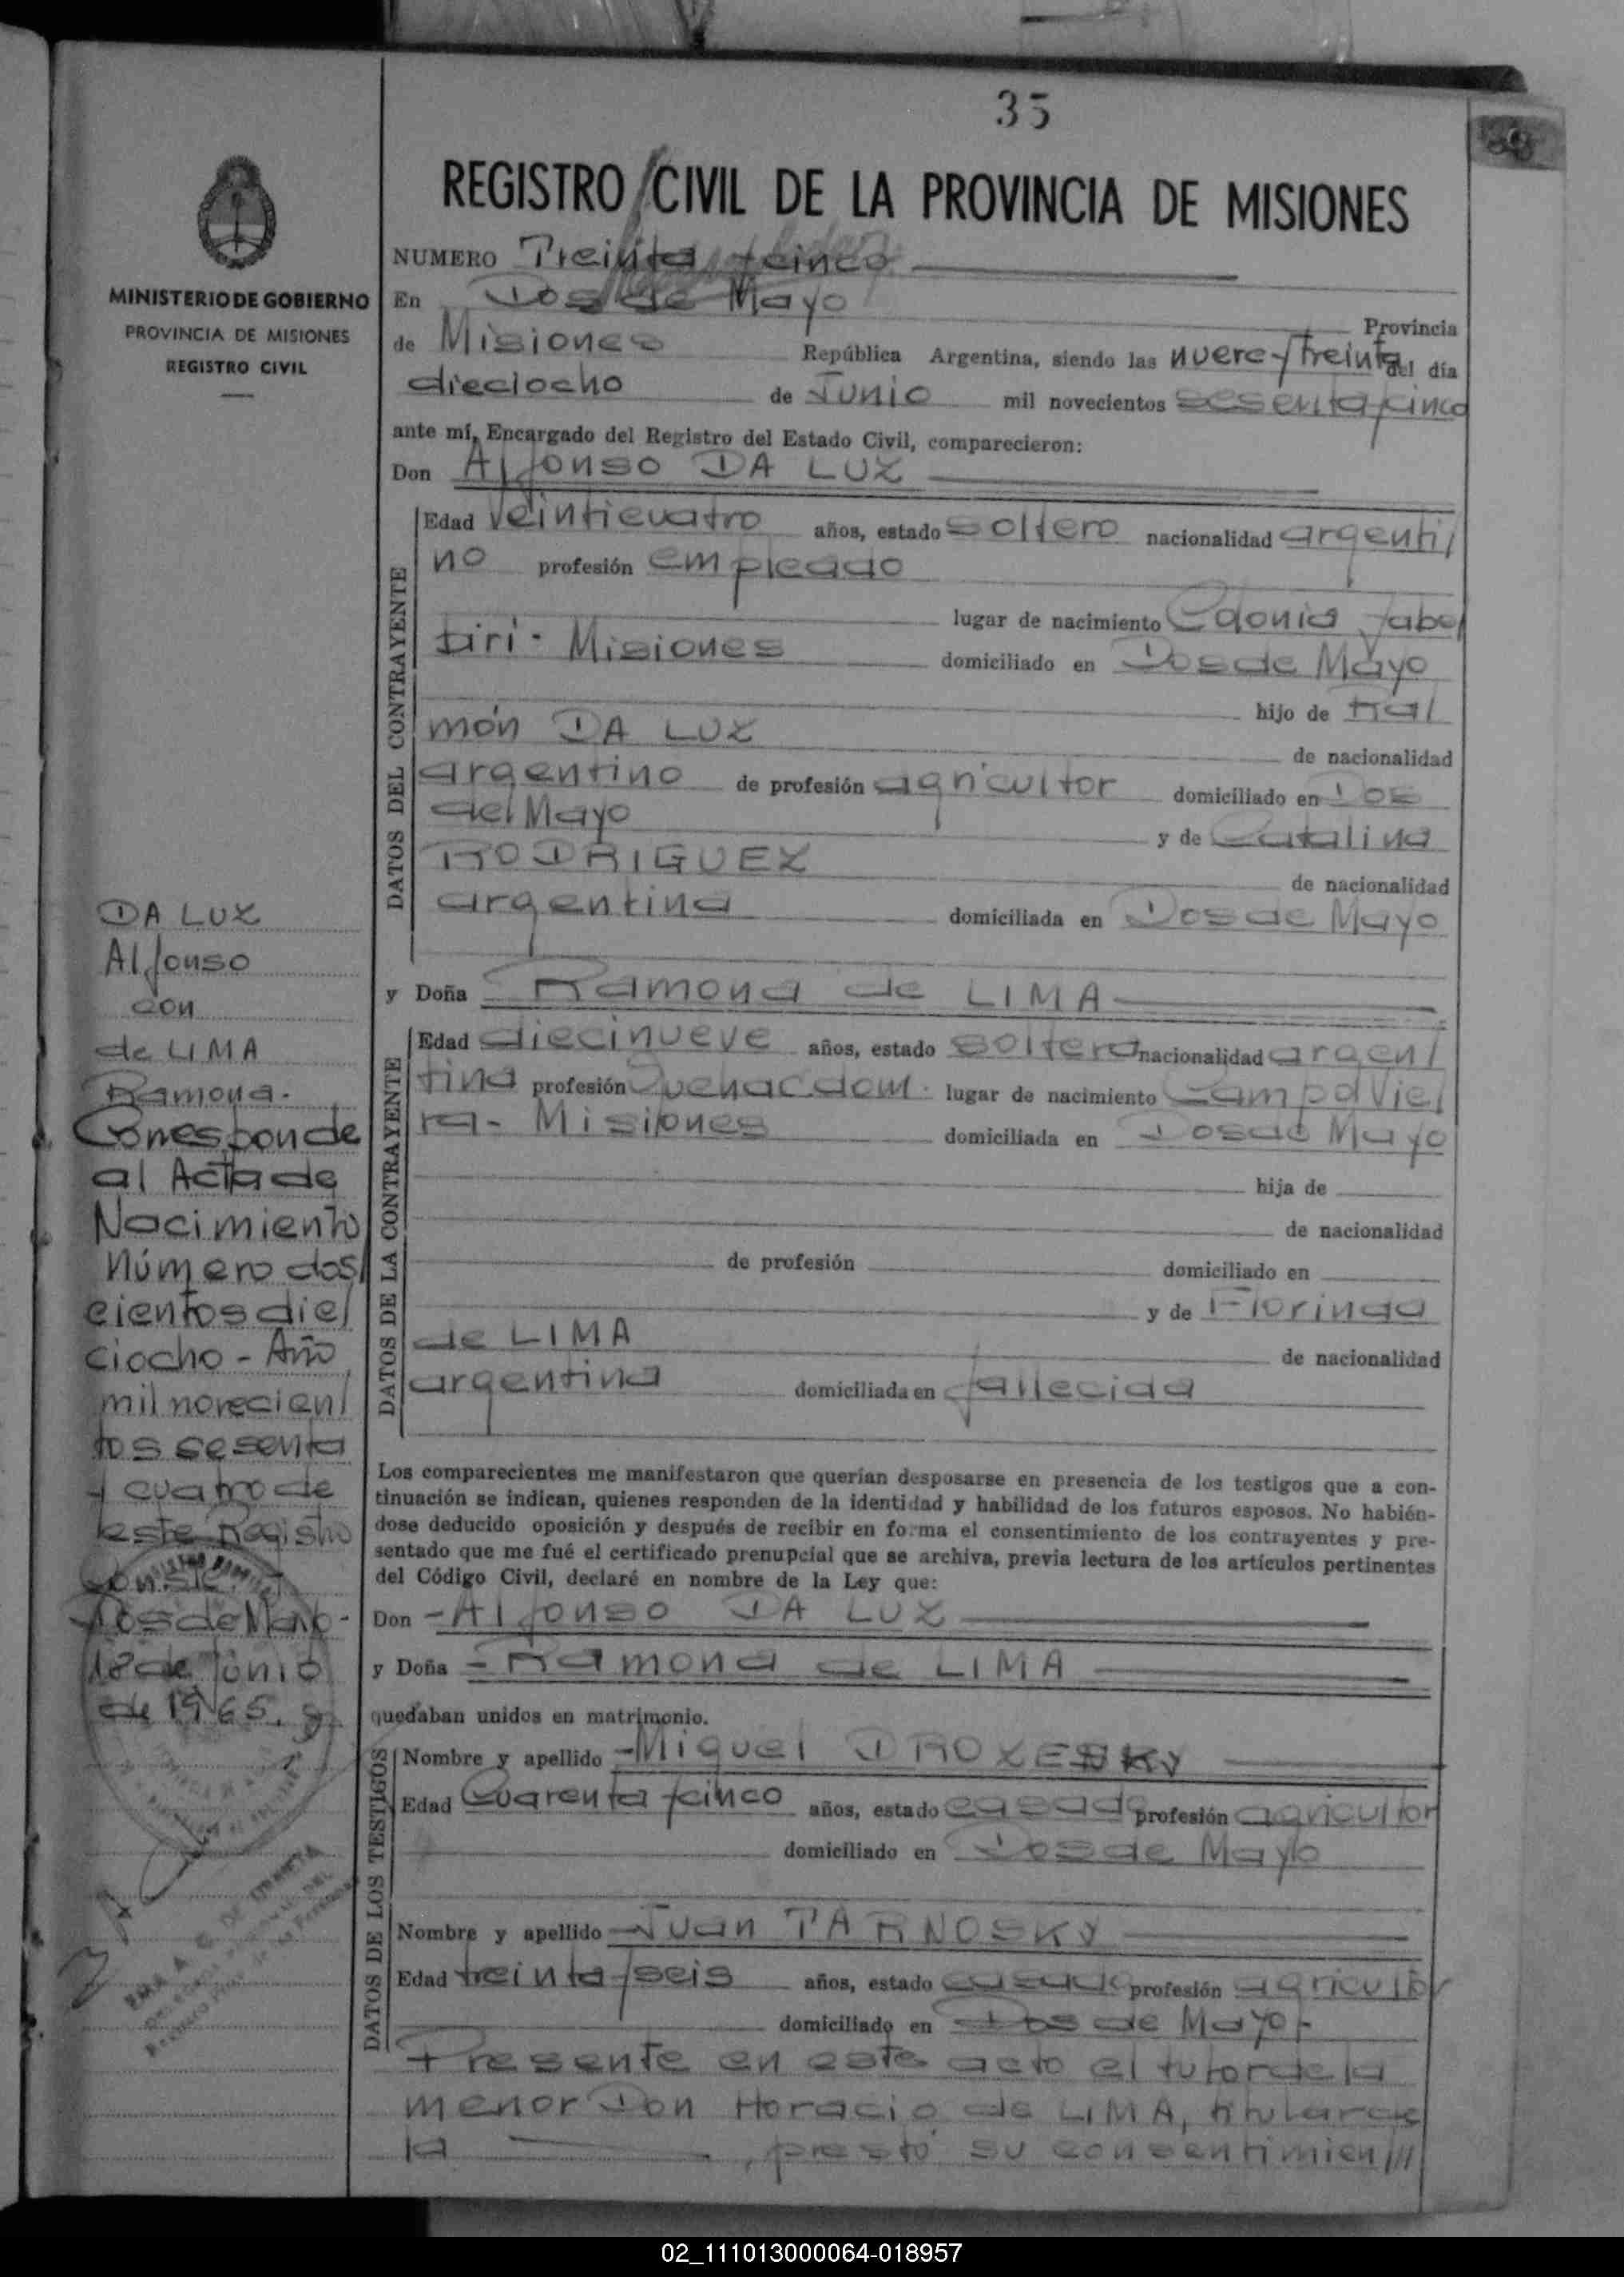 35
REGISTRO CIVIL DE LA PROVINCIA DE MISIONES
MINISTERIO DE GOBIERNO
PROVINCIA DE MISIONES
REGISTRO CIVIL
NUMERO Treinta y cinco
En Dos de Mayo Provincia
de Misiones República Argentina, siendo las nueve y treinta del día
dieciocho de Junio mil novecientos sesenta y cinco
ante mí, Encargado del Registro del Estado Civil, comparecieron:
Don Alfonso DA LUZ
DATOS DEL CONTRAYENTE
Edad veinticuatro años, estado soltero nacionalidad argenti/
no profesión empleado
lugar de nacimiento Colonia Yabo/
tiri - Misiones domiciliado en Dos de Mayo
hijo de Ra/
món DA LUZ de nacionalidad
argentino de profesión agricultor domiciliado en Dos
de Mayo y de Catalina
RODRIGUEZ de nacionalidad
argentina domiciliada en Dos de Mayo
y Doña Ramona de LIMA
DATOS DE LA CONTRAYENTE
Edad diecinueve años, estado soltera nacionalidad argen/
tina profesión Quehac.dom. lugar de nacimiento Campo Vie/
ra - Misiones domiciliada en Dos de Mayo
hija de
de nacionalidad
de profesión domiciliado en
y de Florinda
de LIMA de nacionalidad
argentina domiciliada en fallecida
Los comparecientes me manifestaron que querían desposarse en presencia de los testigos que a con-
tinuación se indican, quienes responden de la identidad y habilidad de los futuros esposos. No habién-
dose deducido oposición y después de recibir en forma el consentimiento de los contrayentes y pre-
sentado que me fué el certificado prenupcial que se archiva, previa lectura de los artículos pertinentes
del Código Civil, declaré en nombre de la Ley que:
Don - Alfonso DA LUZ
y Doña - Ramona de LIMA
quedaban unidos en matrimonio.
DATOS DE LOS TESTIGOS
Nombre y apellido - Miguel DROZESKY
Edad Cuarenta y cinco años, estado casado profesión agricultor
domiciliado en Dos de Mayo
Nombre y apellido - Juan TARNOSKY
Edad treinta y seis años, estado casado profesión agricultor
domiciliado en Dos de Mayo -
Presente en este acto el tutor de la
menor Don Horacio de LIMA, titular de
la , prestó su consentimien///
DA LUZ
Alfonso
con
de LIMA
Ramona.
Corresponde
al Acta de
Nacimiento
Número dos/
cientos die/
ciocho - Año
mil novecien/
tos sesenta
y cuatro de
este Registro
Conste.
Dos de Mayo -
18 de Junio
de 1965.
02_111013000064-018957